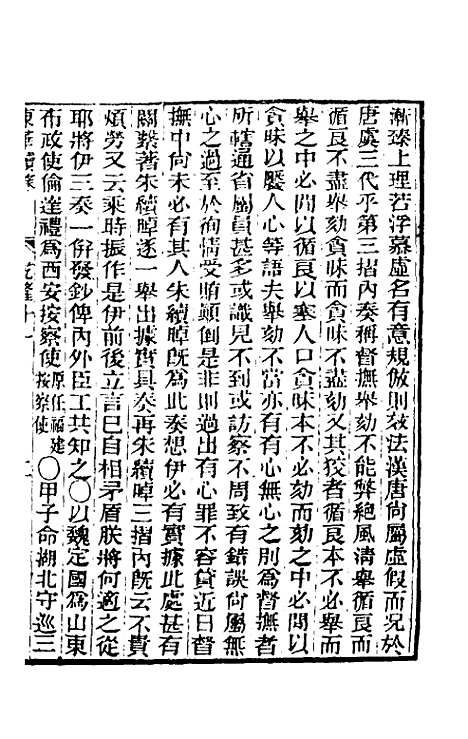 漸臻上理若浮慕虛名有意規倣則效法漢唐尚屬虛假而況於
唐虞三代乎第三摺內奏稱督撫舉劾不能弊絕風清舉循良而
循良不盡舉劾貪昧而貪昧不盡劾又其狡者循良本不必舉而
舉之中必間以循良以塞人口貪昧本不必劾而劾之中必間以
貪昧以饜人心等語夫舉劾不當亦有有心無心之別為督撫者
所轄通省屬員甚多或識見不到或訪察不周致有錯誤尚屬無
心之過至於徇情受賄顛倒是非則過出有心罪不容貸近日督
撫中尚未必有其人朱續晫既為此奏想伊必有實據此處甚有
關繫著朱續晫逐一舉出據實具奏再朱續晫三摺內既云不貴
煩勞又云乘時振作是伊前後立言已自相矛盾朕將何適之從
耶將伊三奏一併發鈔俾內外臣工共知之○以魏定國為山東
布政使倫達禮為西安按察使原任福建按察使○甲子命湖北守巡三
東華續錄 乾隆十一